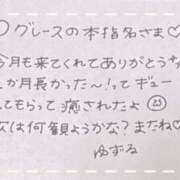 グレースの本指名さま♡
今月も来てくれてありがとう
か月長かった〜！ってギュー
てもらって癒されたよ
次は何観ようかな？またね♡
ゆずる